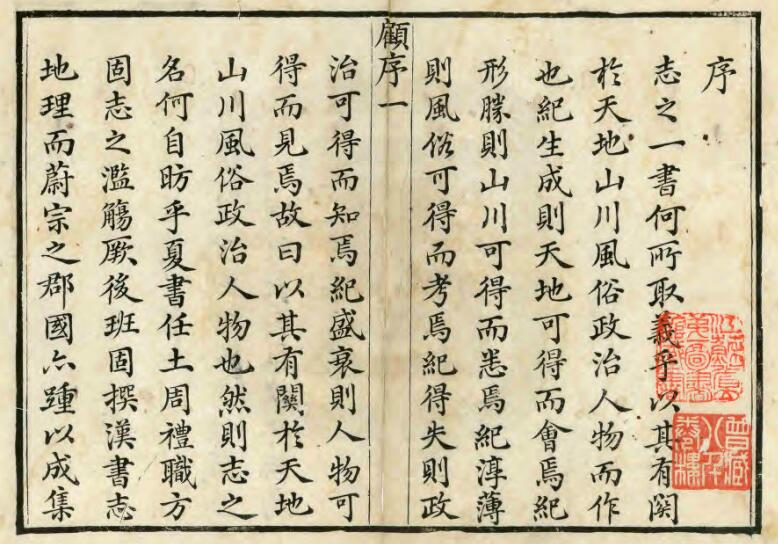 序
志之一書何所取義乎以其有関
於天地山川風俗政治人物而作
也紀生成則天地可得而會焉紀
形勝則山川可得而悉焉紀淳薄
則風俗可得而考焉紀得失則政
顧序一
治可得而知焉紀盛衰則人物可
得而見焉故曰以其有關於天地
山川風俗政治人物也然則志之
名何自昉乎夏書任土周禮職方
固志之濫觴厥後班固撰漢書志
地理而蔚宗之郡國亦踵以成集